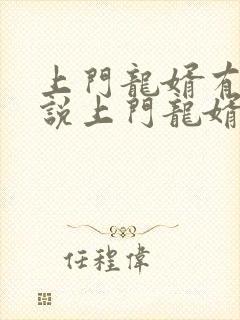 上門龍婿有
說上門龍婿
任程偉